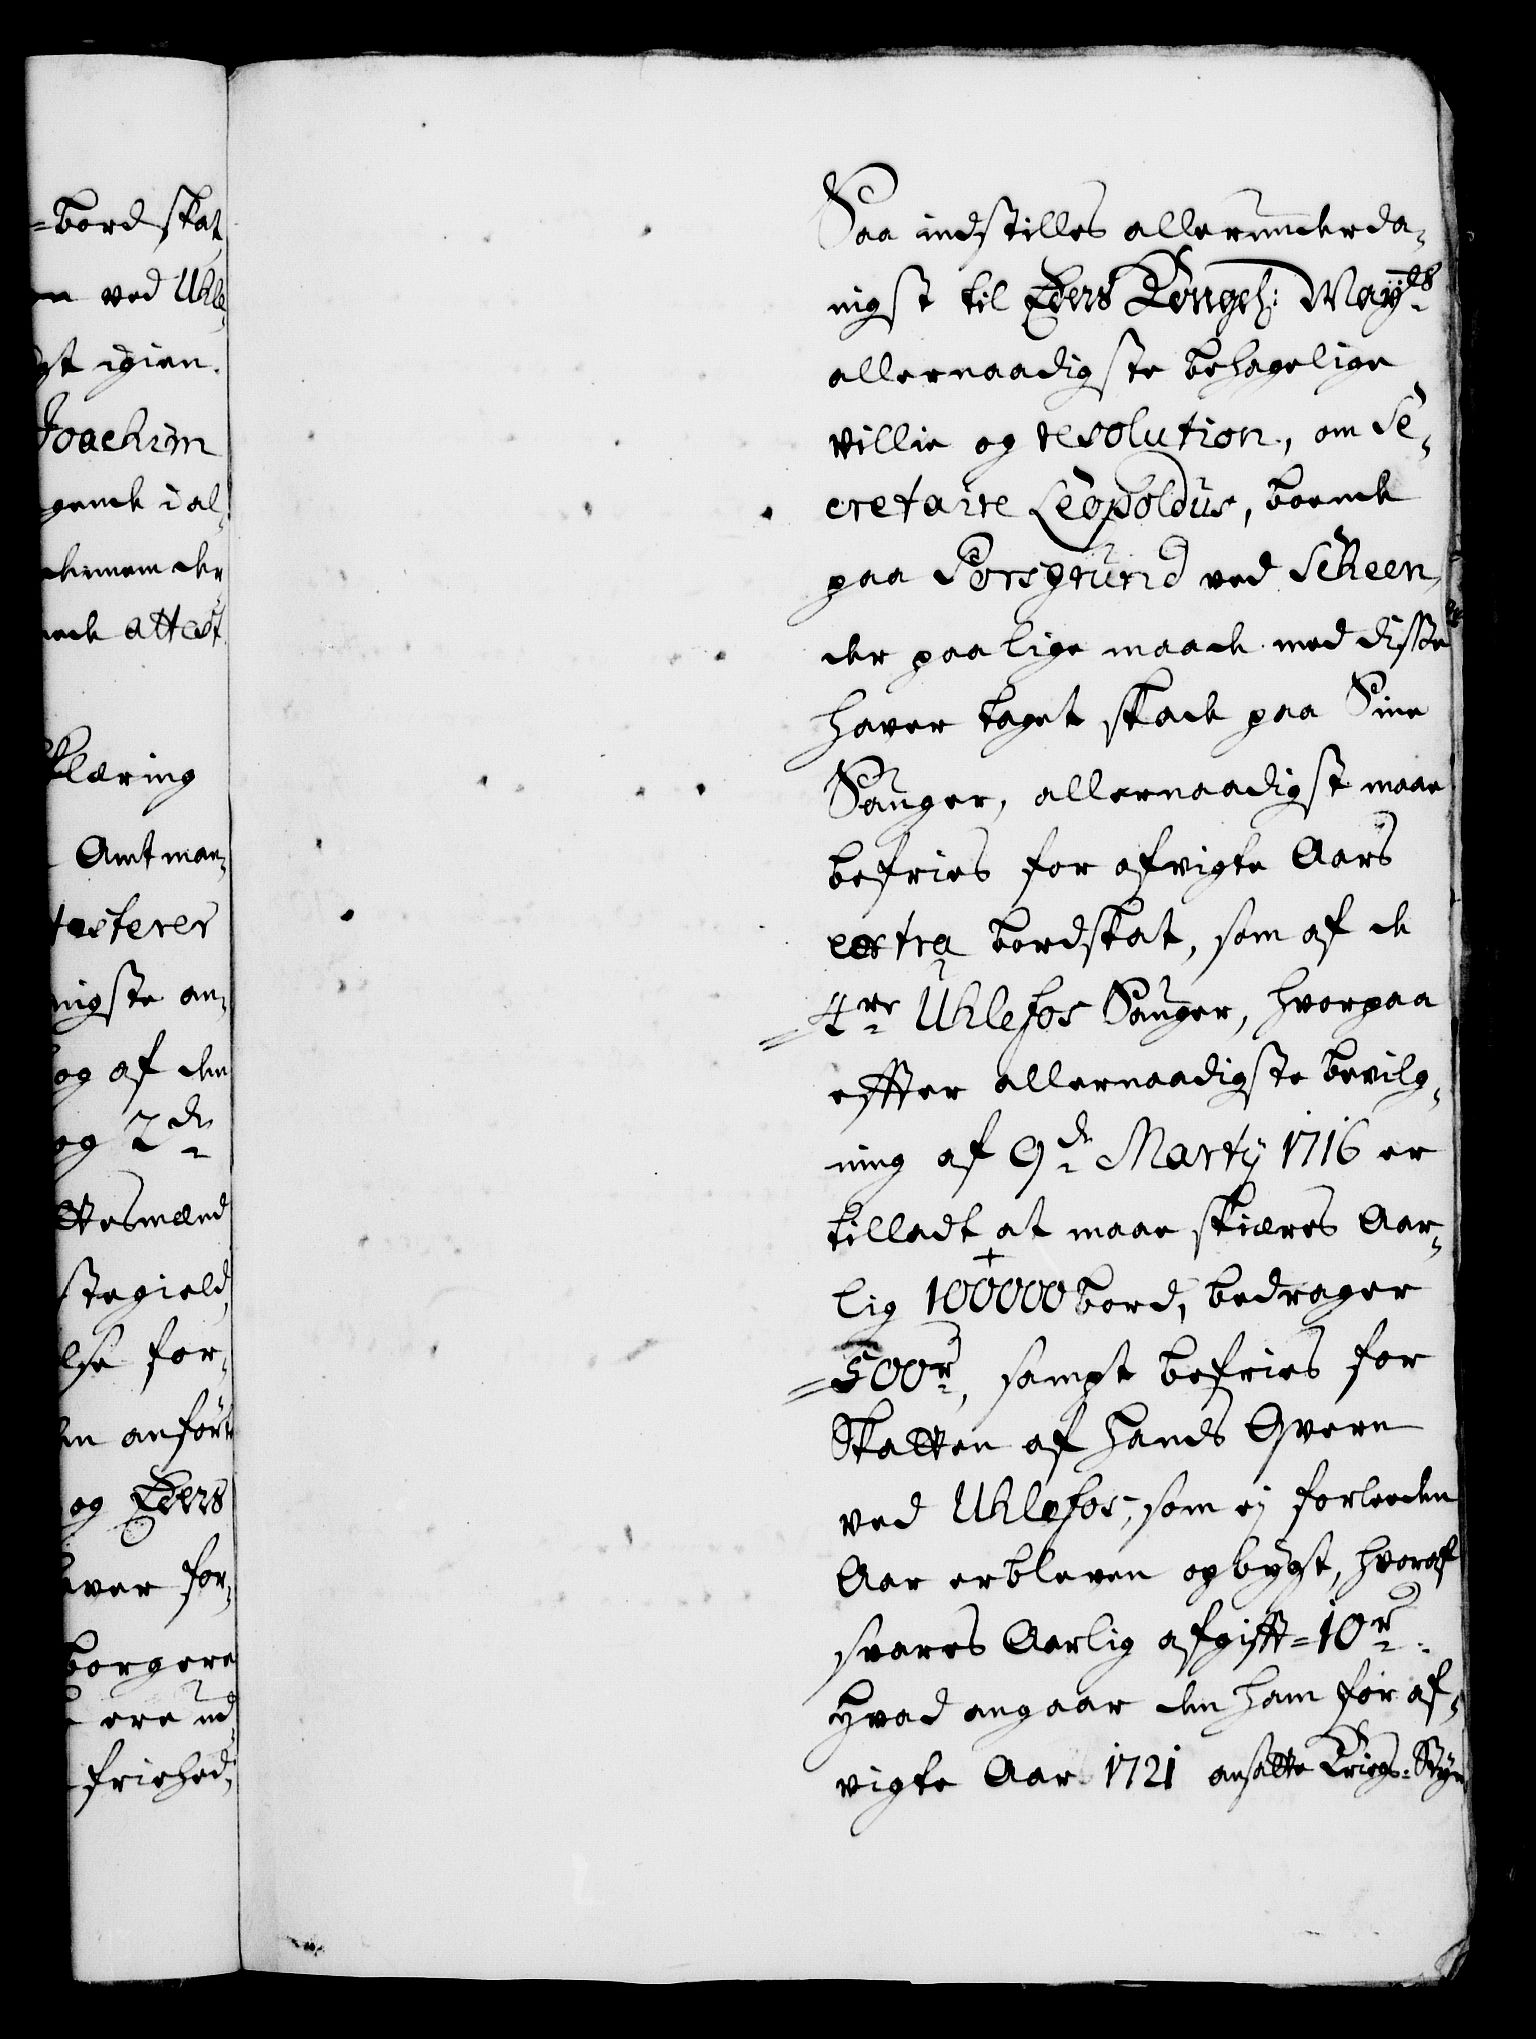 =bord skat
ved Uhle¬
igien.
Joachim
gende i al¬
attest
klæring
Amtman¬
testerer
nigste an¬
og af den
og 2de
stegield
lse for¬
anført
og Eders
ver for¬
borgere
ere ud¬
friehed¬
Saa indstilles allerunderda¬
nigst til Eders Kongel: Mayts
allernaadigste behagelige
villie og resolution, om Se¬
cretaire Leopoldus, boende
paa Porsgrund ved Scheen,
der paa lige maade med disse
haver taget skade paa Sine
Sauger, allernaadigst maae
befries for afvigte Aars
extra bordskat, som af de
=4re Uhlefos Sauger, hvorpaa
effter allernaadigste bevilg¬
ning af 9de Marty 1716 er
tilladt at maae skiæres Aar¬
lig 100000 bord, bedrager
=500r, sampt befries for
Skatten af hands Qvern
ved Uhlefos, som ej forleeden
Aar er bleven opbygt, hvoraf
svares Aarlig afgifft=10r.
hvad angaar den ham for af¬
vigte Aar 1721 ansatte Kriegs=Styr